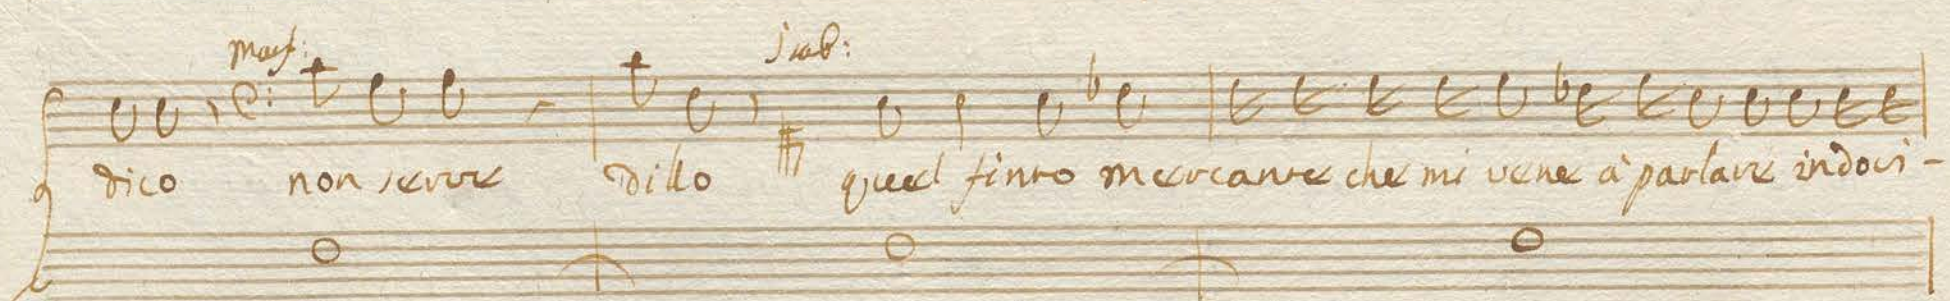 Mas: Isab:
dico non serve dillo quel finto mercante che mi vene à parlare indovi-